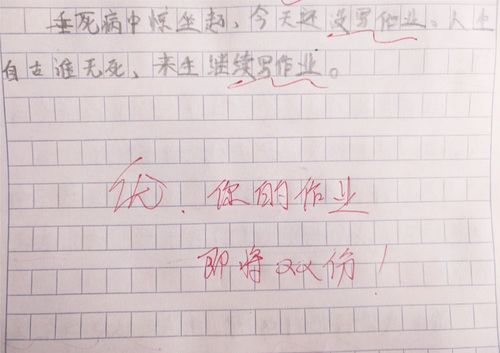 垂死病中惊坐起，今天还没写作业。人生
自古谁无死，来生继续写作业。
优．你的作业
即将双份！